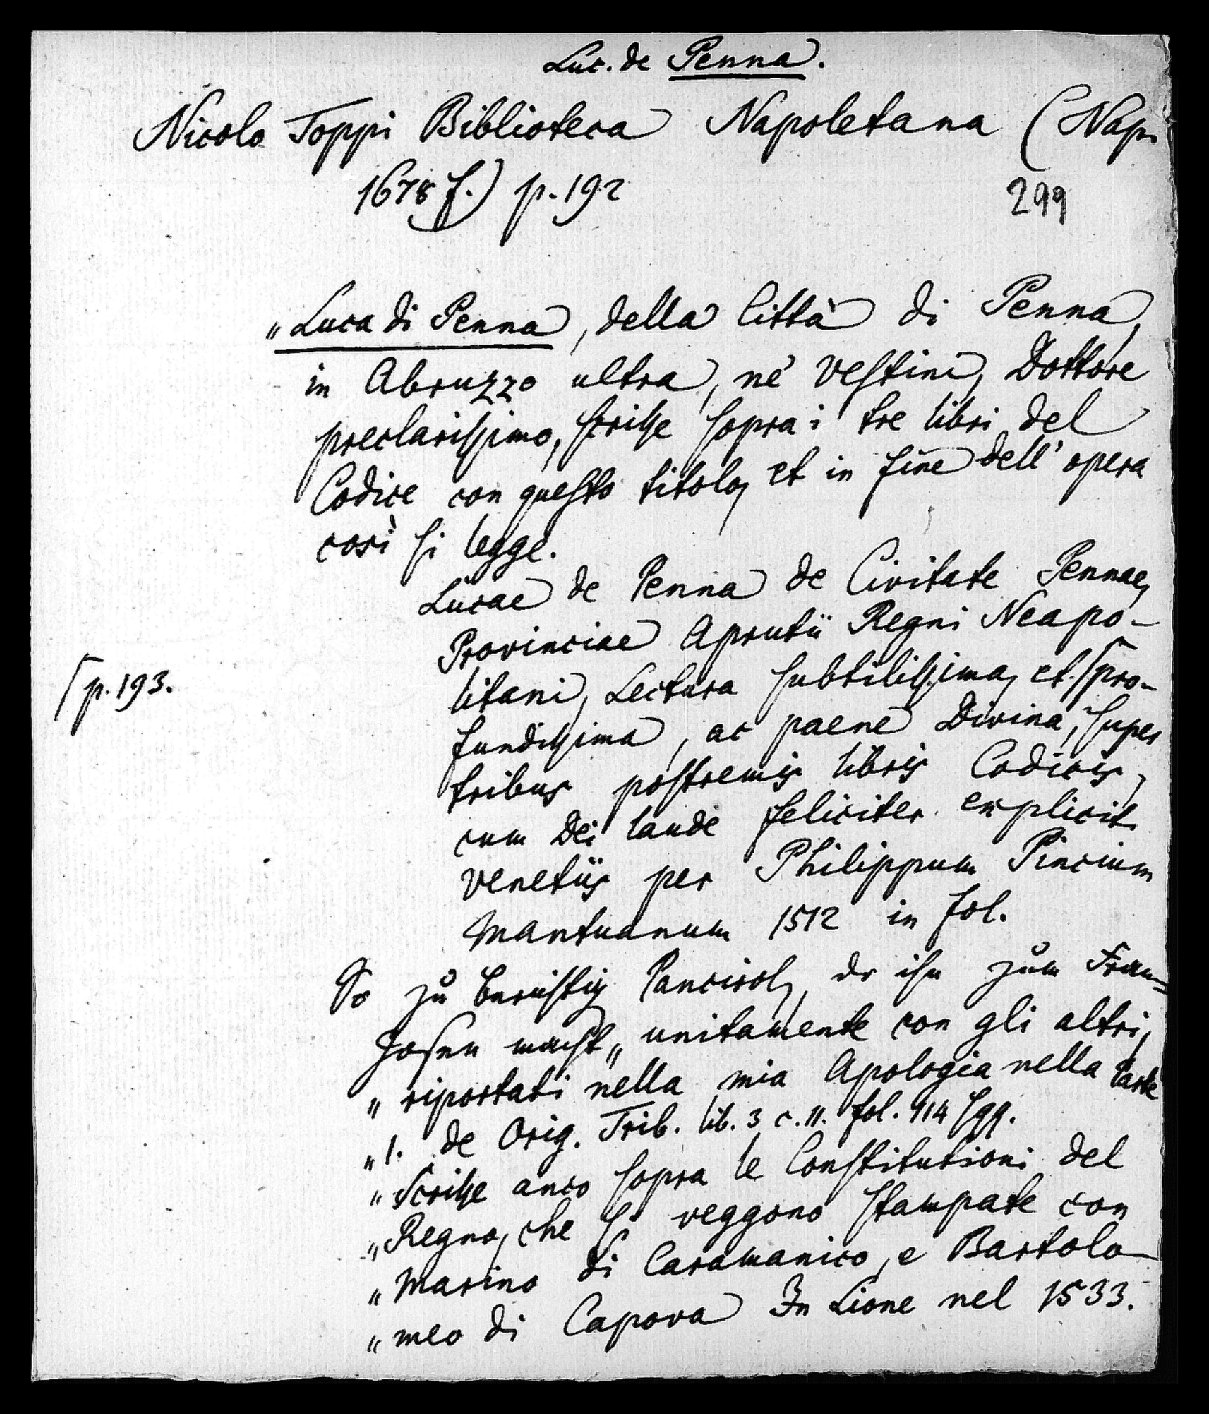 Luc. de Penna.
Nicolo Toppi Biblioteca Napoletana (Nap.
1678 f.) p. 192
299
„Luca di Penna, della Città di Penna,
in Abruzzo ultra, ne' Vestini, Dottore
preclarissimo, scrisse sopra i tre libri del
Codice con questo titolo, et in fine dell' opera
così si legge.
Lucae de Penna de Civitate Pennae,
Provinciae Aprutii Regni Neapo-
litani, Lectura subtilissima, et [pro-
[p. 193.
fundissima, ac paene Divina, super
tribus postremis libris Codicis,
cum Dei laude feliciter explicit
Venetiis per Philippum Pincium
Mantuanum 1512 in fol.
So zu berichtig Panciroli, dr ihn zum Fran-
zosen macht „unitamente con gli altri,
„riportati nella mia Apologia nella Parte
„1. de Orig. Trib. lib. 3 c. 11. fol. 114 sqq.
„Scrisse anco sopra le Constitutioni del
„Regno, che si veggono stampate con
„Marino di Caramanico, e Bartolo-
„meo di Capova In Lione nel 1533.